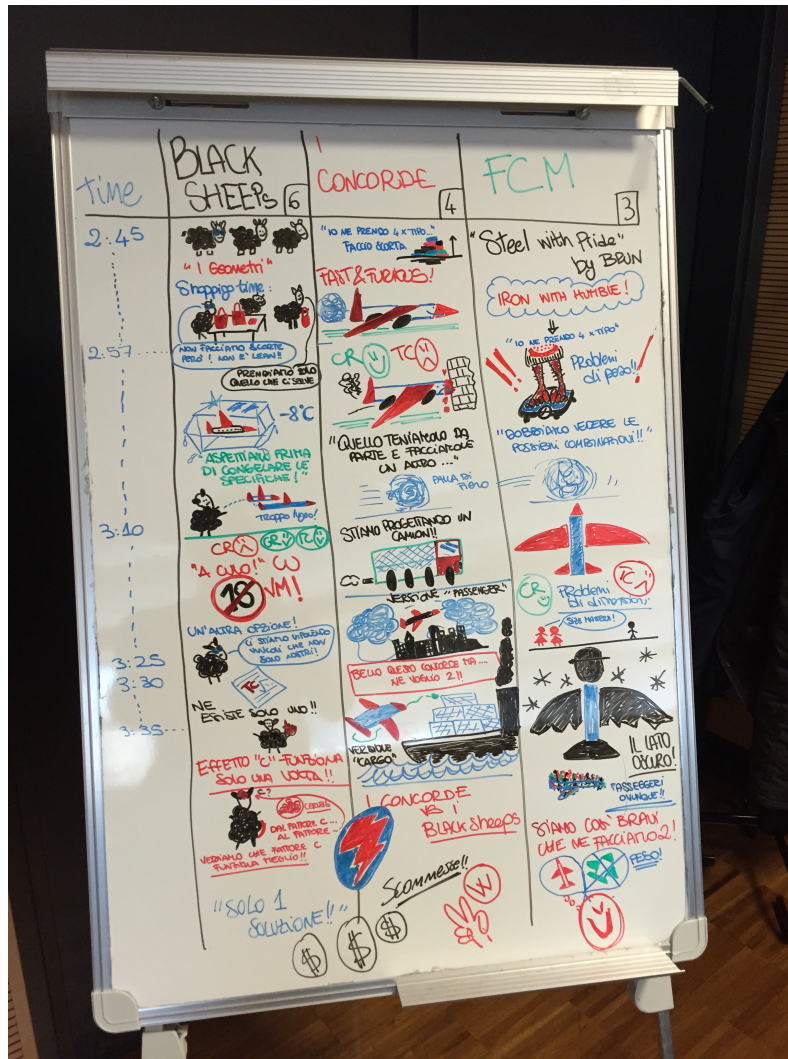 time
2:45
2:57
3:10
3:25
3:30
3:35
BLACK
SHEEPS 6
"I GEOMETRI"
Shopping time:
NON FACCIAMO SCORTE
PERÒ! NON È LEAN!!
PRENDIAMO SOLO
QUELLO CHE CI SERVE
-8°C
"ASPETTIAMO PRIMA
DI CONGELARE LE
SPECIFICHE!"
TROPPO
CR CR TC
"A CULO!"
18 VM!
UN'ALTRA OPZIONE!
CI STIAMO
VINCOLI CHE NON
SONO NOSTRI!
TC
NE
ESISTE SOLO UNO!!
EFFETTO "C" FUNZIONA
SOLO UNA VOLTA!!
C?
DAL FATTORE C...
AL FATTORE...
VEDIAMO CHE FATTORE C
FUNZIONA MEGLIO!!
"SOLO 1
SOLUZIONE!!"
$ $ $
I
CONCORDE
4
"IO NE PRENDO 4 x TIPO..."
FACCIO SCORTA
FAST & FURIOUS!
CR TC
"QUELLO TENIAMOLO DA
PARTE E FACCIAMONE
UN ALTRO..."
PALLA DI
STIAMO PROGETTANDO UN
CAMION!!
VERSIONE "PASSENGER"
BELLO QUESTO CONCORDE MA....
NE VOGLIO 2!!
VERSIONE
"CARGO"
I CONCORDE
VS I
BLACK SHEEPS
SCOMMESSE!!
W
FCM
3
"Steel with Pride"
by BRUN
IRON WITH HUMBLE!
"IO NE PRENDO 4 x TIPO"
Problemi
di peso!!
"DOBBIAMO VEDERE LE
POSSIBILI COMBINAZIONI!!"
CR Problemi TC
di dimensioni
SIZE MATTERS!
IL LATO
OSCURO!
PASSEGGERI
OVUNQUE!!
SIAMO COSÌ BRAVI
CHE NE FACCIAMO 2!
PESO!